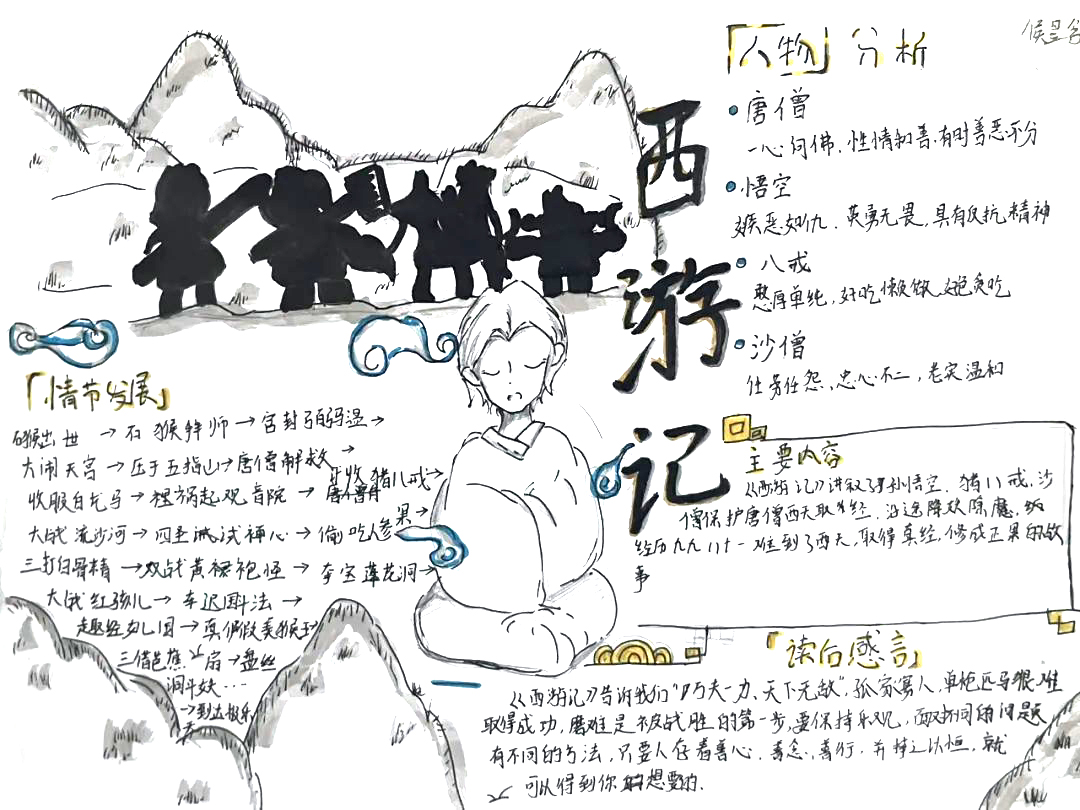 「人物」分析
•唐僧
一心向佛、性情和善、有时善恶不分
•悟空
嫉恶如仇、英勇无畏,具有反抗精神
•八戒
憨厚单纯,好吃懒做
•沙僧
任劳任怨,忠心不二,老实温和
西
游
记
「情节发展」
石猴出世→石猴拜师→官封弼马温→
大闹天宫→压于五指山→唐僧解救→
收服白龙马→祸起观音院→收猪八戒→
大战流沙河→四圣试禅心→偷吃人参果→
三打白骨精→双战黄袍怪→夺宝莲花洞→
大战红孩儿→车迟国斗法→
趣经女儿国→真假美猴王
三借芭蕉扇→盘丝
洞斗妖…
→到达极乐
主要内容
《西游记》讲叙了孙悟空、猪八戒,沙
僧保护唐僧西天取经,沿途降妖除魔,
经历九九八十一难到了西天,取得真经,修成正果的故
事
「读后感言」
《西游记》告诉我们"万夫一力、天下无敌",孤家寡人,单枪匹马很难
取得成功,磨难是被战胜的第一步,要保持乐观,面对不同的问题
有不同的方法,只要人存着善心、善念、善行、并持之以恒,就
可以得到你想要的.